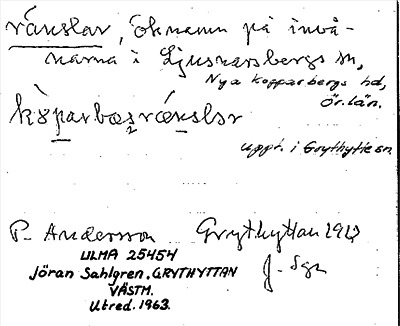 ränslar, öknamn på invå-
narna i Ljusnarsbergs sn,
Nya Kopparbergs hd,
Ör. län.
köparbæsrænslar
uppt. i Grythytte sn.
P. Andersson Grythyttan 1913
ULMA 25454
Jöran Sahlgren, GRYTHYTTAN J. Sgn
VÄSTM.
Utred. 1963.